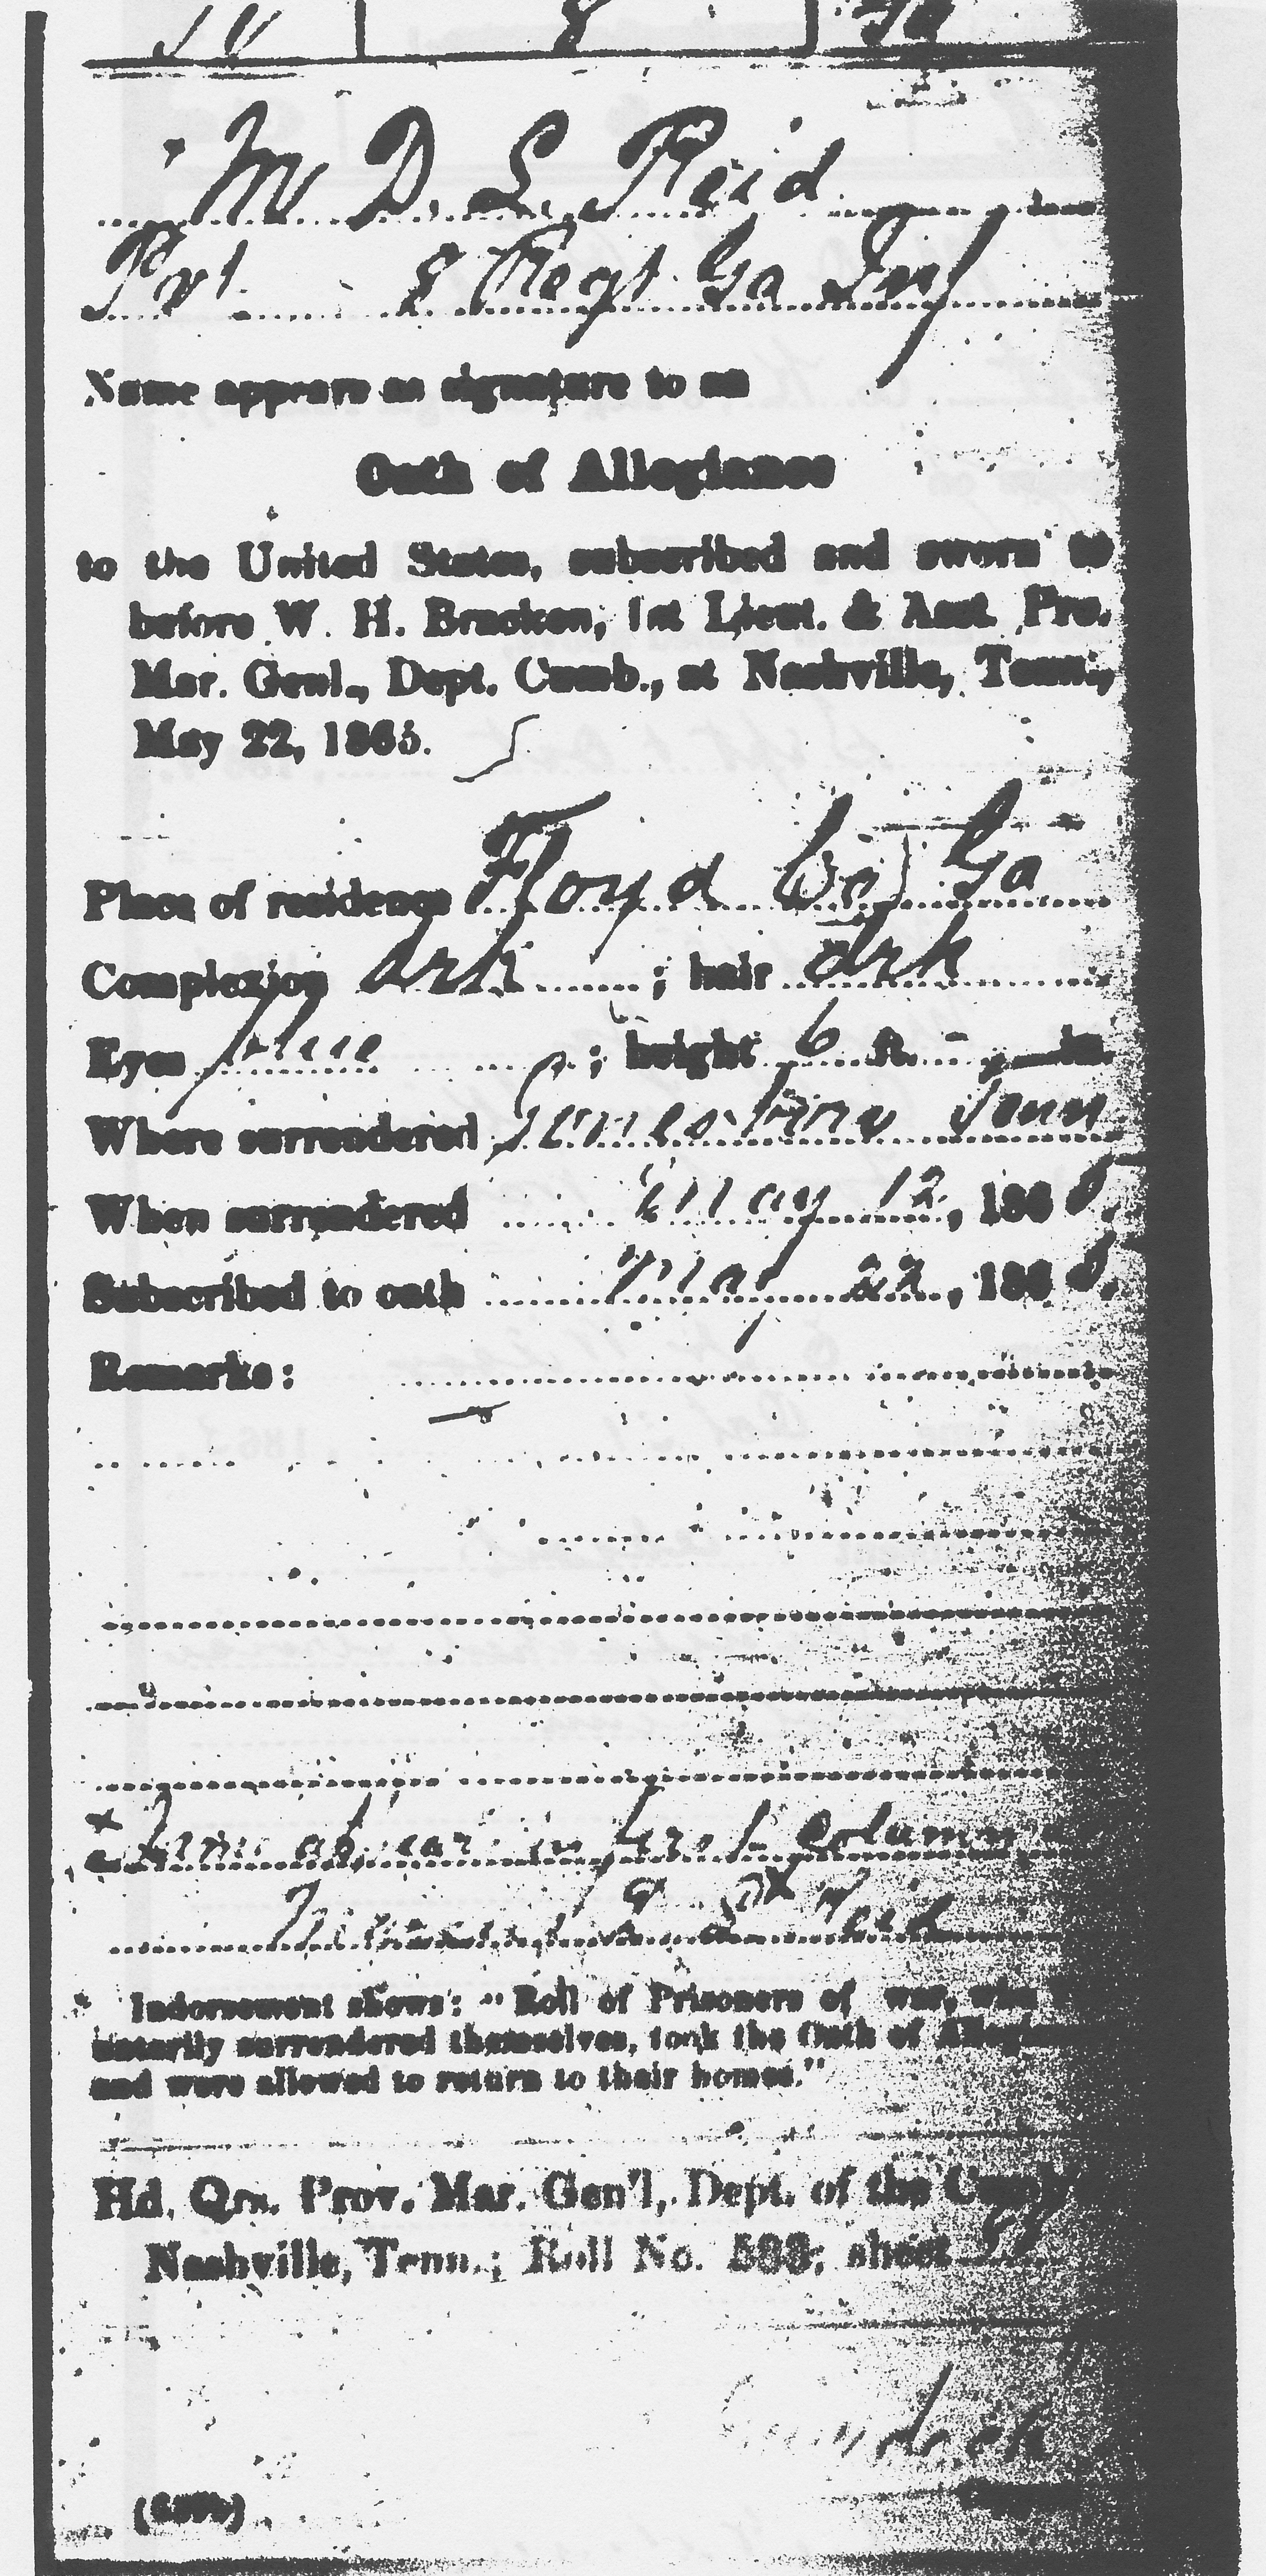 8
M D. L. Reid
Pvt 8 Regt Ga Inf
Name appears as signature to an
Oath of Allegiance
to the United States, subscribed and sworn to
before W. H. Bracken, 1st Lieut. & Asst. Pro.
Mar. Genl., Dept. Cumb., at Nashville, Tenn.,
May 22, 1865.
Place of residence Floyd Co, Ga
Complexion drk ; hair drk
Eyes blue ; height 6 ft. – in.
Where surrendered Jonesboro Tenn
When surrendered May 12, 1865.
Subscribed to oath May 22, 1865.
Remarks:
* Name appear in first Column
Reid
* Indorsement shows: "Roll of Prisoners of war, who
untarily surrendered themselves, took the Oath of Allegi
and were allowed to return to their homes."
Hd. Qrs. Prov. Mar. Gen'l, Dept. of the Cumb
Nashville, Tenn.; Roll No. 593; sheet